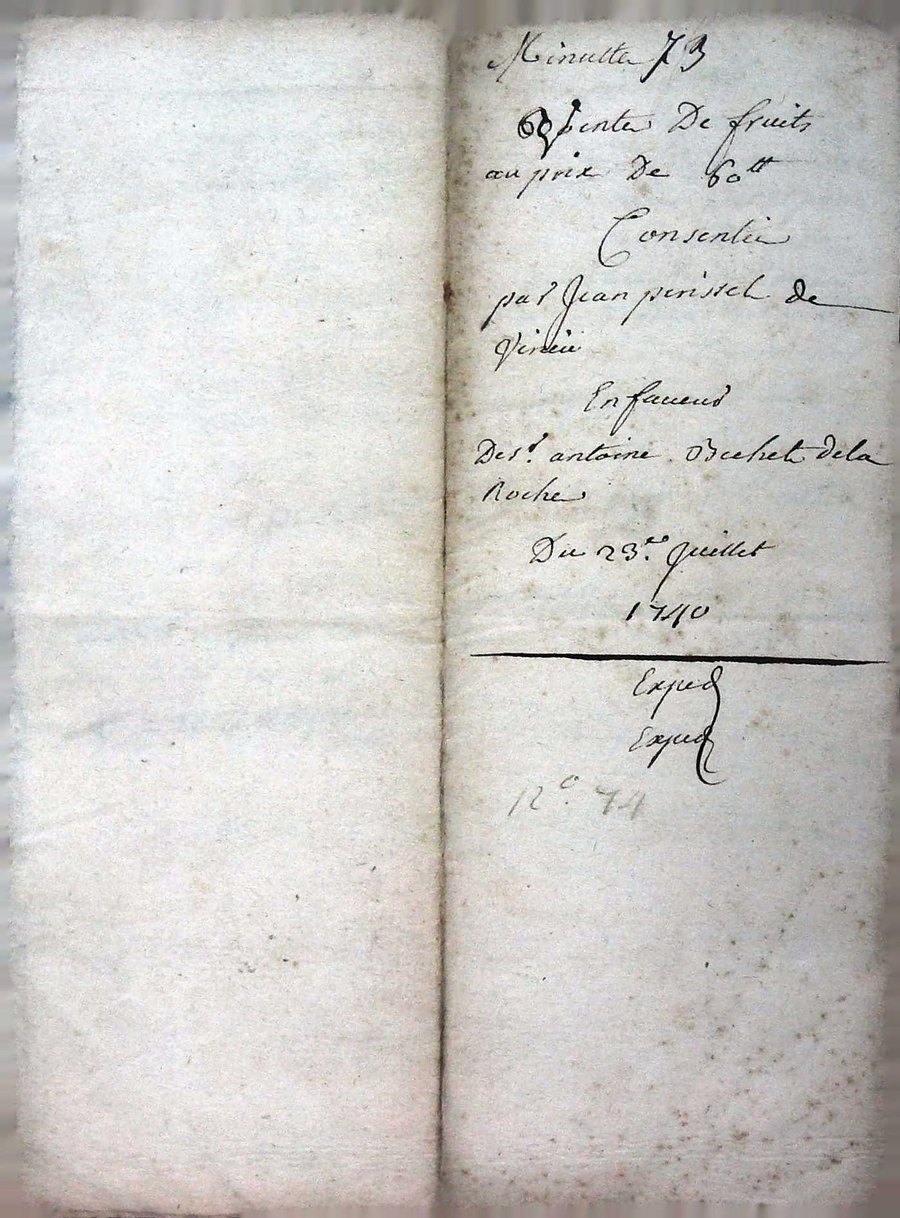 Minutte 73
60 Vente De fruits
au prix De 60tt
Consentie
par Jean perissel de
En faveur
Des.r antoine Bechet dela
Roche
Du 23.e Juillet
1740
Exped
Exped
N.o 74